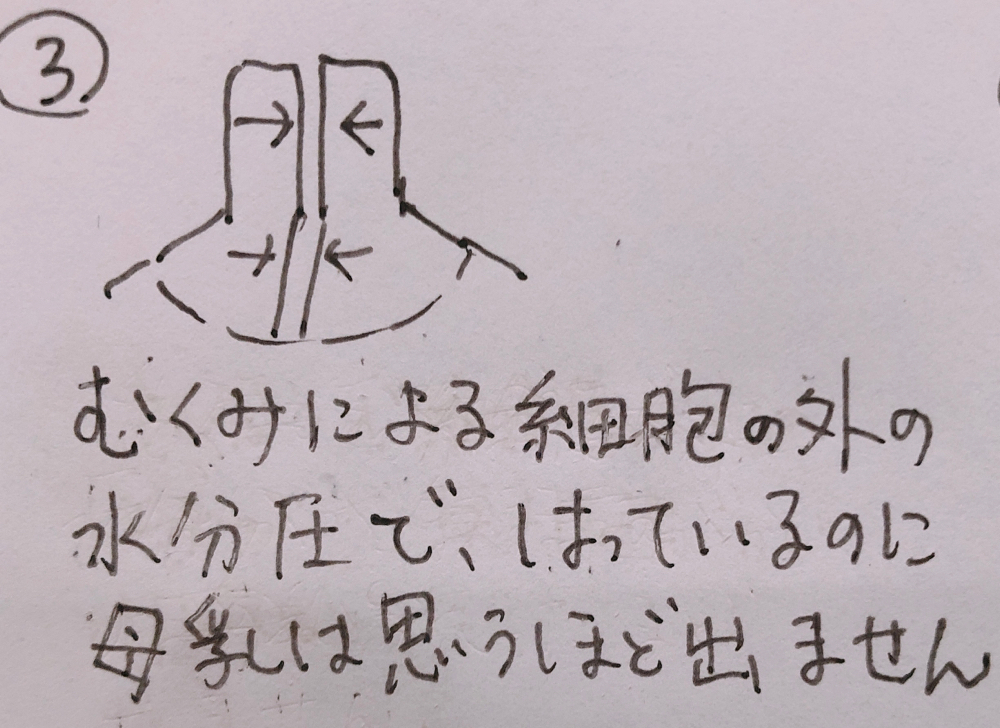 ③
むくみによる細胞の外の
水分圧で、はっているのに
母乳は思うほど出ません